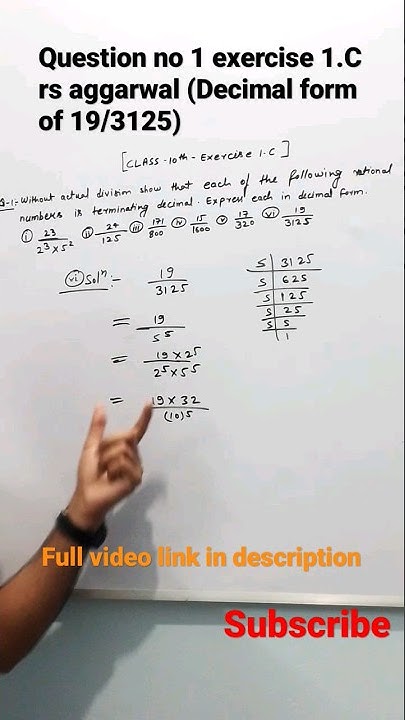 Question no 1 exercise 1.C
rs aggarwal (Decimal form
of 19/3125)
[CLASS-10th-Exercise 1.C]
Q-1:- Without actual division show that each of the following rational
numbers is terminating decimal. Express each in decimal form.
(i) 23/2³×5² (ii) 24/125 (iii) 171/800 (iv) 15/1600 (v) 17/320 (vi) 19/3125
(vi) Solⁿ:- 19/3125
= 19/5⁵
= 19×2⁵/2⁵×5⁵
= 19×32/(10)⁵
5 | 3125
5 | 625
5 | 125
5 | 25
5 | 5
1
Full video link in description
Subscribe